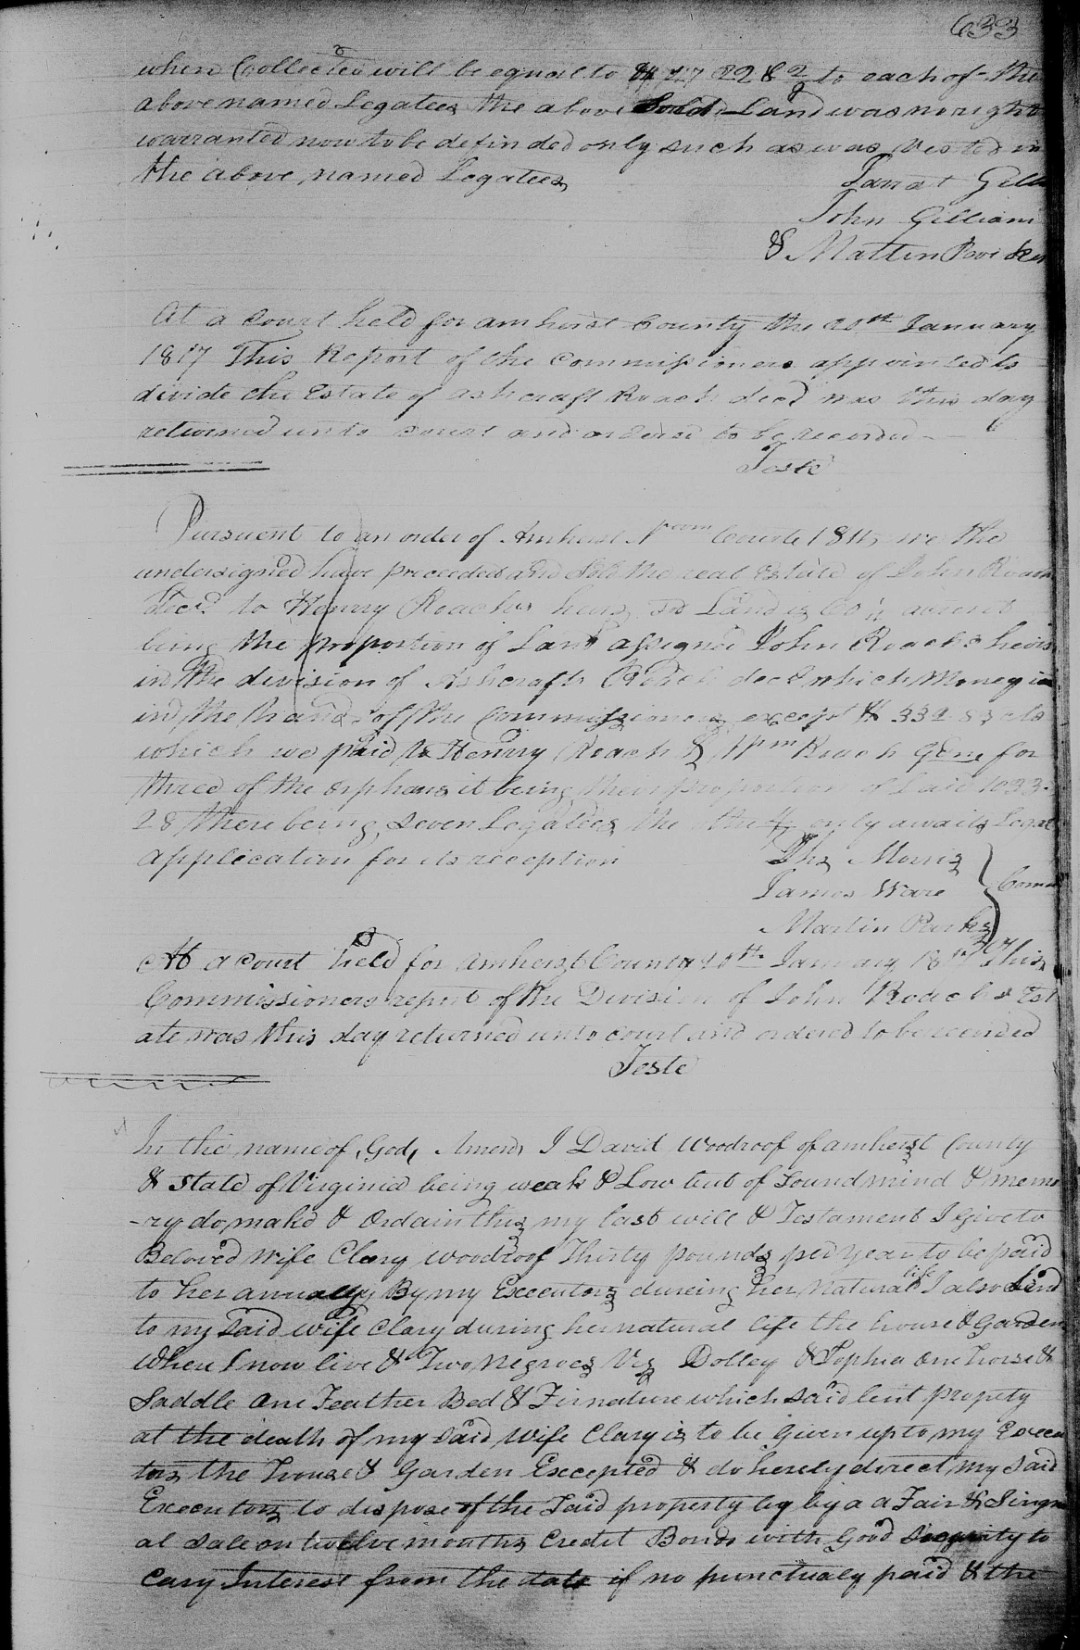 633
when Collected will be equal to to each of the
above named Legatees the above Sold Land was no right
warranted now to be definded only such as was Vested in
the above named Legatees
John Gilliam
& Martin
At a Court held for Amherst County the 20th January
1817 This Report of the Commissioners appointed to
divide the Estate of Ashcraft Roach decd was this day
returned unto court and ordered to be recorded
Teste
Pursuent to an order of Amherst Court we the
undersigned have proceeded and Sold the real Estate of John Roach
decd to Henry Roach heirs Land
being the proportion of Land assigned John Roach's heirs
in the division of Ashcraft Roach decd which Money is
in the hands of the Commissioners except $ 332.83 cts
which we paid to Henry Roach & Wm Roach for
three of the orphans it being their proportion of Said
28 there being seven Legatees the only awaits Legal
application for its reception
Ths Morris
James Ware
Martin Parks
At a court held for Amherst County 20th January 1817 This
Commissioners report of the Division of John Roach's Est
ate was this day returned unto court and ordered to be recorded
Teste
In the name of God, Amen, I David Woodroof of amherst County
& State of Virginia being weak & Low but of Sound mind & memo
-ry do make & Ordain this my last will & Testament I Give to
Beloved wife Clary woodroof Thirty pounds per year to be paid
to her anually By my Executors dureing her Natural life I also Lend
to my Said wife Clary during her natural life the house & Garden
where I now live & Two Negroes Viz Dolley & Sophia one horse &
Saddle one Feather Bed & Firnature which said lent propety
at the death of my Said wife Clary is to be Given up to my Execu
tors the house & Garden Excepted & do hereby direct my Said
Executors to dispose of the Said property by by a a Fair &
al Sale on twelve months Credit Bonds with Good Security to
Cary Interest from the date if no punctualy paid & the